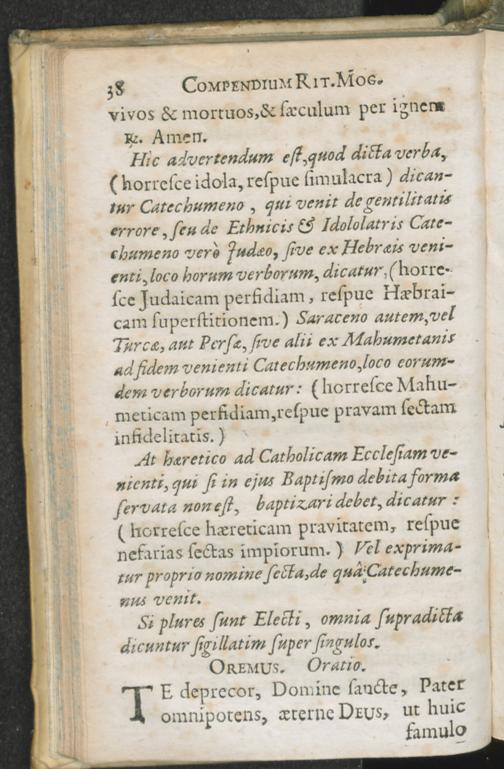 38 COMPENDIUM RIT. MOG.
vivos & mortuos, & sæculum per ignem
℟. Amen.
Hic advertendum eſt, quod dicta verba,
(horreſce idola, reſpue ſimulacra) dican-
tur Catechumeno, qui venit de gentilitatis
errore, ſeu de Ethnicis & Idololatris Cate-
chumeno verò Judæo, ſive ex Hebræis veni-
enti, loco horum verborum, dicatur, (horre-
ſce Judaicam perfidiam, reſpue Hæbrai-
cam ſuperſtitionem.) Saraceno autem, vel
Turcæ, aut Perſæ, ſive alii ex Mahumetanis
ad fidem venienti Catechumeno, loco eorum-
dem verborum dicatur: (horreſce Mahu-
meticam perfidiam, reſpue pravam ſectam
infidelitatis.)
At hæretico ad Catholicam Eccleſiam ve-
nienti, qui ſi in ejus Baptiſmo debita forma
ſervata non eſt, baptizari debet, dicatur:
(horreſce hæreticam pravitatem, reſpue
nefarias ſectas impiorum.) Vel exprima-
tur proprio nomine ſecta, de quâ Catechume-
nus venit.
Si plures ſunt Electi, omnia ſupradicta
dicuntur ſigillatim ſuper ſingulos.
OREMUS. Oratio.
TE deprecor, Domine ſancte, Pater
omnipotens, æterne DEUS, ut huic
famulo